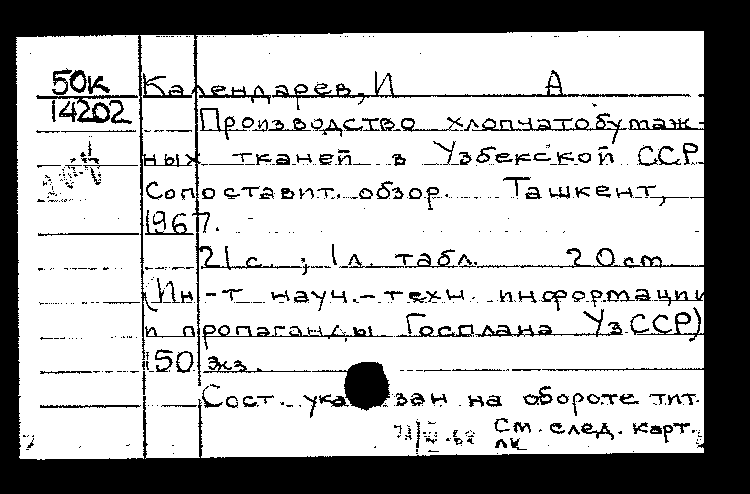 50к Календарев, И А
14202
Производство хлопчатобумаж-
ных тканей в Узбекской ССР
Сопоставит. обзор. Ташкент,
1967.
21 с. ; 1 л. табл. 20 cm
(Ин-т науч.-техн. информации
и пропаганды Госплана УзССР)
150 экз.
Сост. указан на обороте тит.
См. след. карт.
лк